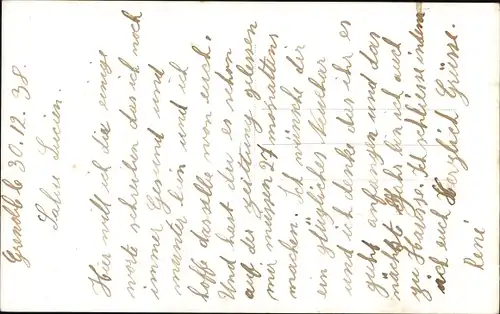 Grenoble 30.12.38.
Salu Lucien.
Hier will ich dir einige
worte schreiben das ich noch
immer Gesund und
munter bin und ich
hoffe dasselbe von euch.
Und hast du es schon
auf der zeittung gelesen
mir müssen 27 monattens
machen. Ich wünsche dir
ein glügliches Neujahr
und ich denke das ihr es
guht anfangen und das
nächste Jahr bin ich auch
zu Hause. Ich schliesse indem
ich euch Herzlich Grüsse.
René